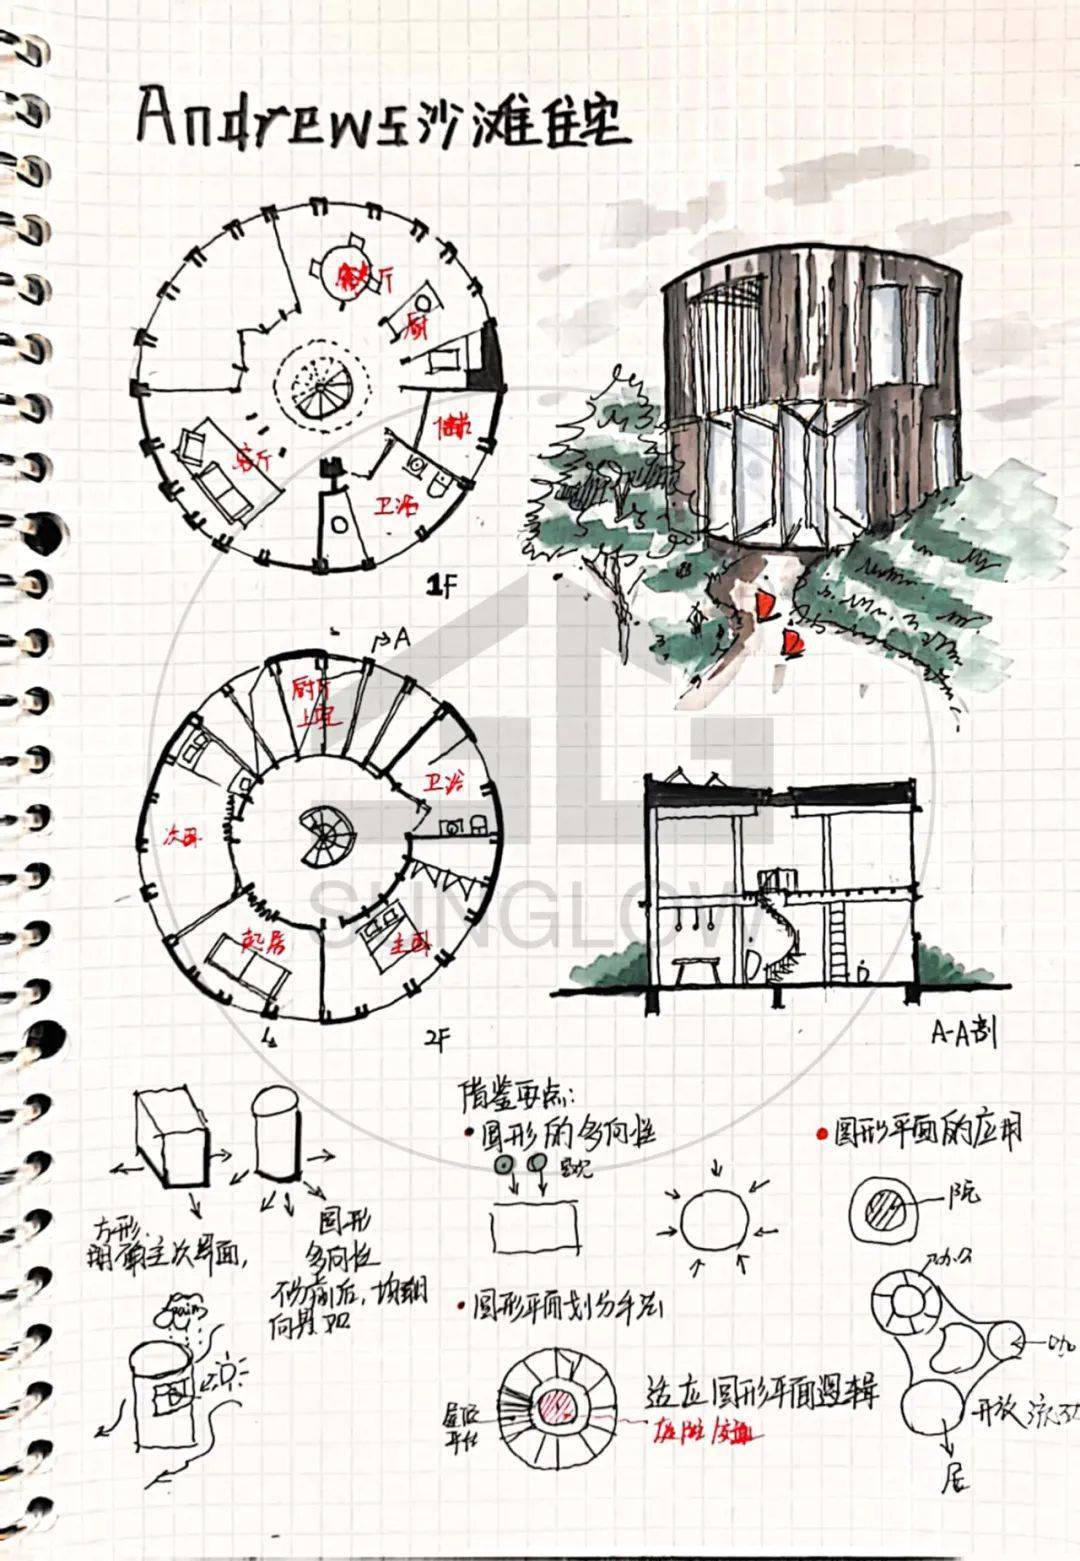 Andrews沙滩住宅
客厅
厨
卫浴
1F
A
厨厅
上空
卫浴
次卧
起居
主卧
2F
SUNGLOW
A-A剖
借鉴要点:
• 圆形的多向性
• 圆形平面的应用
方形:
明确主次界面,
圆形
多向性
不分前后, 均朝
向景观
院
• 圆形平面划分手法
rain
适应圆形平面逻辑
屋顶
平台
办公
开放 流动
居